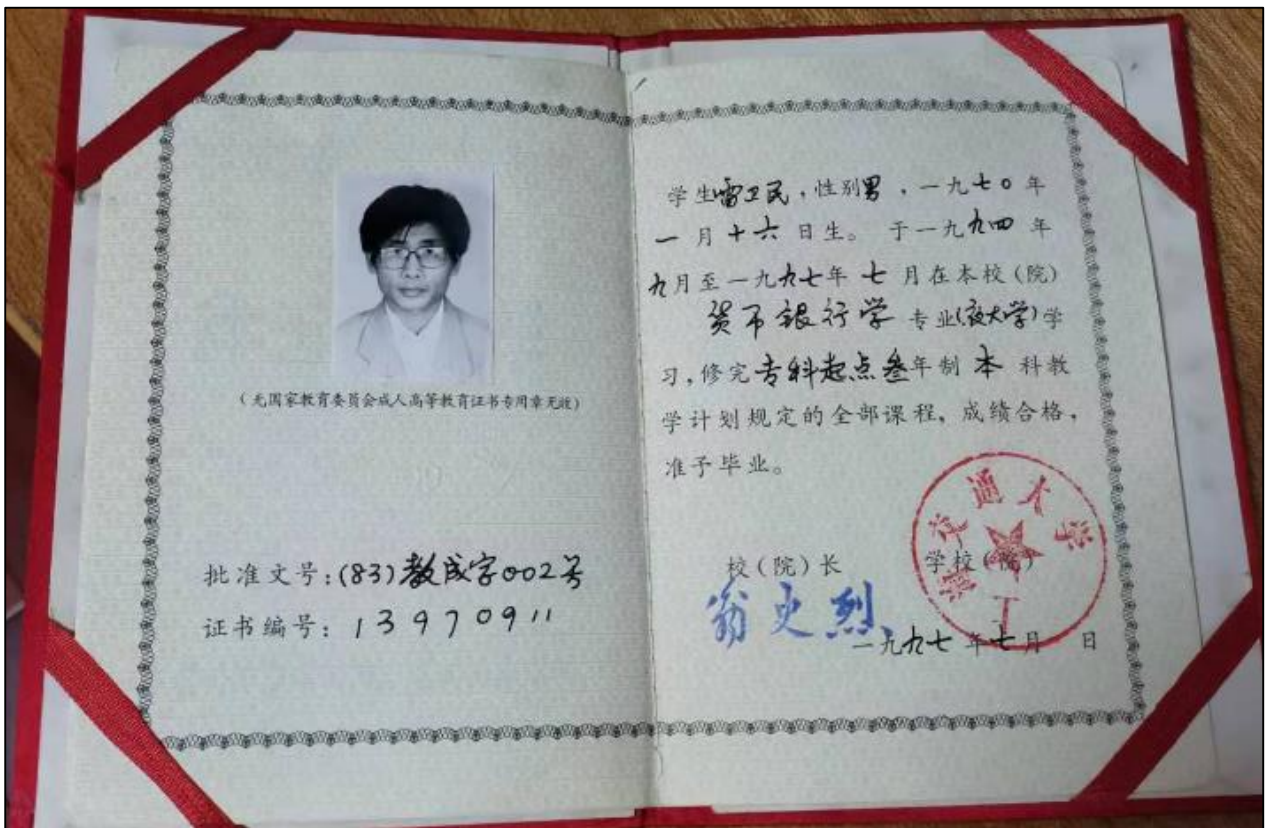 (无国家教育委员会成人高等教育证书专用章无效)
批准文号:(83)教成字002号
证书编号:13970911
学生雷卫民,性别男,一九七〇年
一月十六日生。于一九九四年
九月至一九九七年七月在本校(院)
货币银行学专业(夜大学)学
习,修完专科起点叁年制本科教
学计划规定的全部课程,成绩合格,
准予毕业。
校(院)长 学校(院)
翁史烈
一九九七年七月 日
上海交通大学